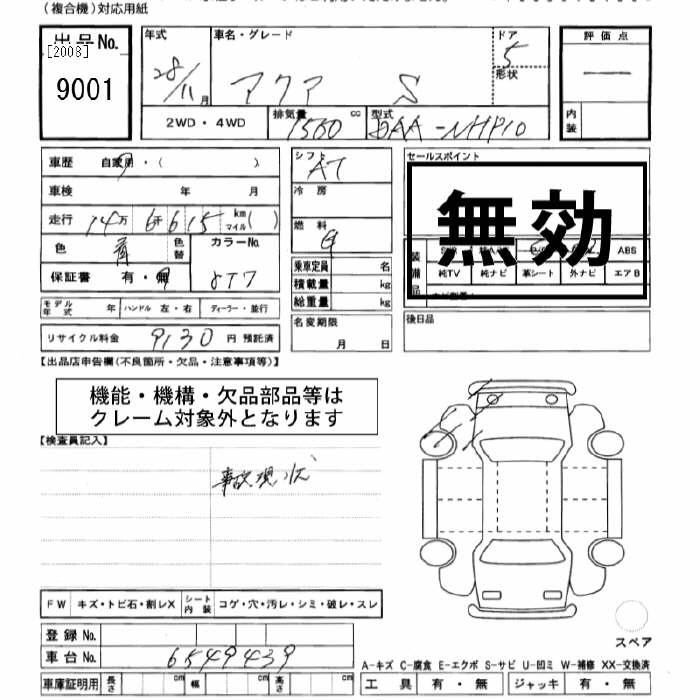 (複合機)対応用紙
出品No. [2003] 9001
年式 28/11月
車名・グレード アクア S
ドア 5
形状
評価点 —
内装
2WD・4WD
排気量 1500 cc
型式 DAA-NHP10
車歴 自家用・( )
車検 年 月
走行 14万 6千 615 km マイル ( )
色 青 色替 カラーNo. 8T7
保証書 有・無
モデル年式 ハンドル 左・右 ディーラー・並行
リサイクル料金 9130 円 預託済
シフト AT
冷房
燃料
乗車定員 名
積載量 kg
総重量 kg
名変期限 月 日
セールスポイント
無効
装備品 ABS
純TV 純ナビ 革シート 外ナビ エアB
後日品
【出品店申告欄(不良箇所・欠品・注意事項等)】
機能・機構・欠品部品等は
クレーム対象外となります
【検査員記入】
事故現状
FW キズ・トビ石・割レX シート内装 コゲ・穴・汚レ・シミ・破レ・スレ
登録No.
車台No. 6549439
車庫証明用 長さ cm 幅 cm 高さ cm
スペア
A-キズ C-腐食 E-エクボ S-サビ U-凹ミ W-補修 XX-交換済
工具 有・無 ジャッキ 有・無